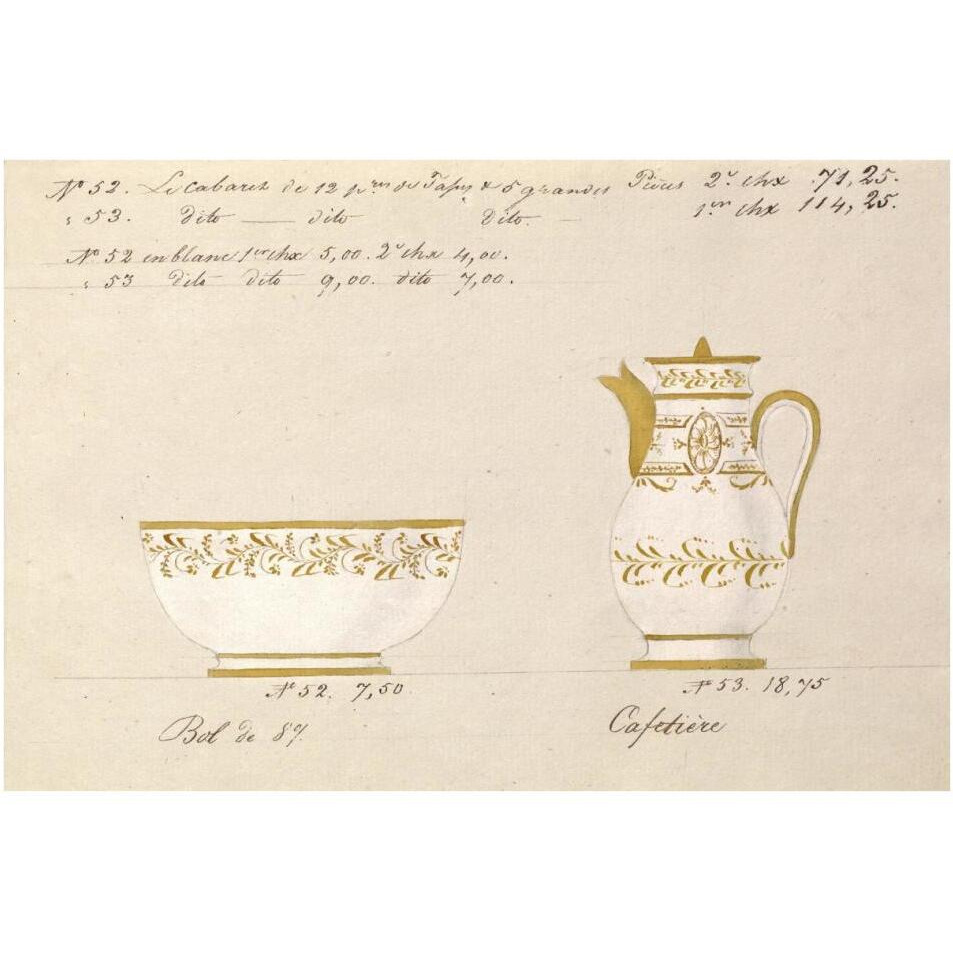 No 52. Le Cabaret de 12 pres de Tasses & 5 grandes Pièces 2e chx 71,25.
" 53. dito — dito Dito. — 1er chx 114,25.
No 52 en blanc 1er chx 5,00. 2e chx 4,00.
" 53 dito dito 9,00. dito 7,00.
No 52. 7,50
Bol de 87.
No 53. 18,75
Cafetière